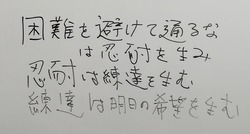 困難を避けて通るな
は忍耐を生み
忍耐は練達を生む
練達は明日の希望を生む